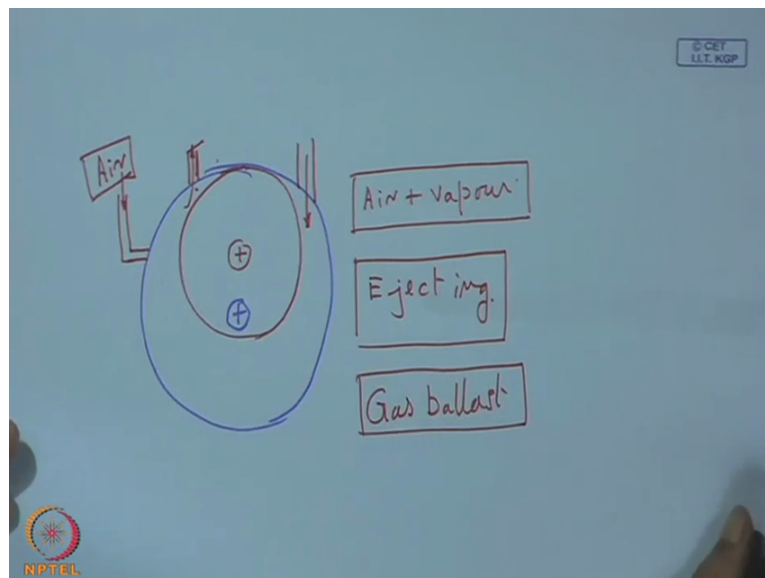 © CET
I.I.T. KGP
Air
Air + Vapour
Ejecting.
Gas ballast
NPTEL